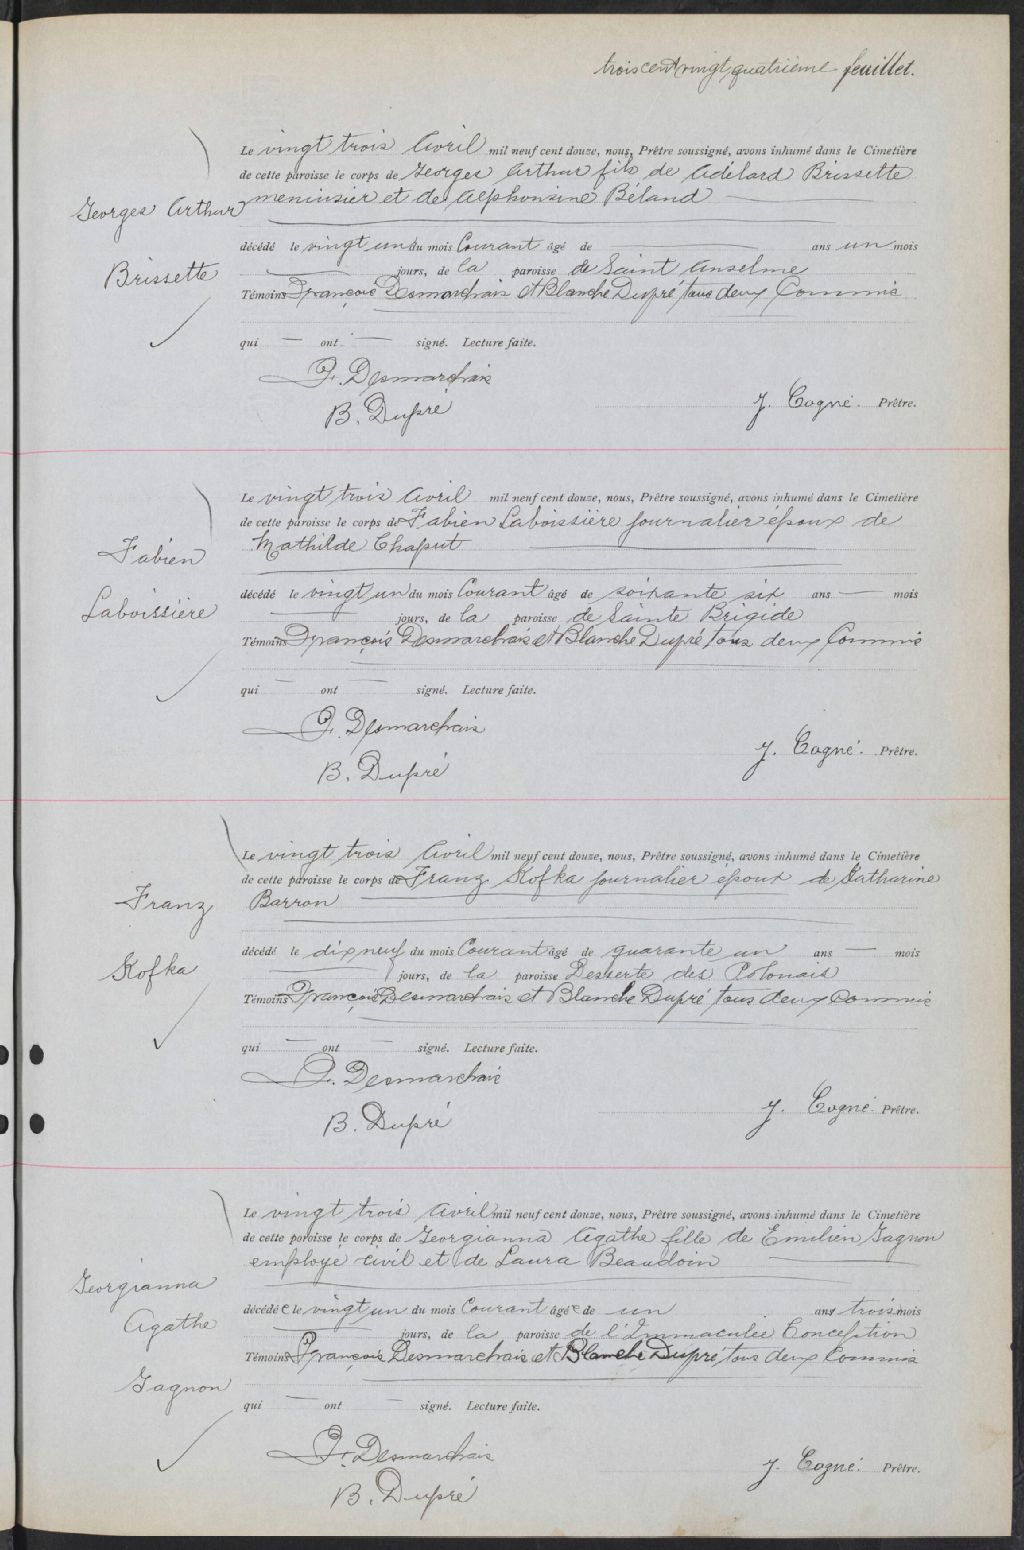 trois cent vingt quatrième feuillet.
Le vingt trois Avril mil neuf cent douze, nous, Prêtre soussigné, avons inhumé dans le Cimetière
de cette paroisse le corps de Georges Arthur fils de Adélard Brissette
menuisier et de Alphonsine Béland
Georges Arthur
Brissette
décédé le vingt un du mois Courant âgé de ans un mois
jours, de la paroisse de Saint Anselme
Témoins François Desmarchais et Blanche Dupré tous deux Commis
qui — ont — signé. Lecture faite.
F. Desmarchais
B. Dupré
J. Cogné. Prêtre.
Le vingt trois Avril mil neuf cent douze, nous, Prêtre soussigné, avons inhumé dans le Cimetière
de cette paroisse le corps de Fabien Laboissière journalier époux de
Mathilde Chaput
Fabien
Laboissière
décédé le vingt un du mois Courant âgé de soixante six ans — mois
jours, de la paroisse de Sainte Brigide
Témoins François Desmarchais et Blanche Dupré tous deux Commis
qui — ont signé. Lecture faite.
F. Desmarchais
B. Dupré
J. Cogné. Prêtre.
Le vingt trois Avril mil neuf cent douze, nous, Prêtre soussigné, avons inhumé dans le Cimetière
de cette paroisse le corps de Franz Kofka journalier époux de Katharine
Barron
Franz
Kofka
décédé le dix neuf du mois Courant âgé de quarante un ans — mois
jours, de la paroisse Desserte des Polonais
Témoins François Desmarchais et Blanche Dupré tous deux Commis
qui — ont — signé. Lecture faite.
F. Desmarchais
B. Dupré
J. Cogné. Prêtre.
Le vingt trois Avril mil neuf cent douze, nous, Prêtre soussigné, avons inhumé dans le Cimetière
de cette paroisse le corps de Georgianna Agathe fille de Emilien Gagnon
employé civil et de Laura Beaudoin
Georgianna
Agathe
Gagnon
décédée le vingt un du mois Courant âgée de un ans trois mois
jours, de la paroisse de l'Immaculée Conception
Témoins François Desmarchais et Blanche Dupré tous deux Commis
qui — ont — signé. Lecture faite.
F. Desmarchais
B. Dupré
J. Cogné. Prêtre.